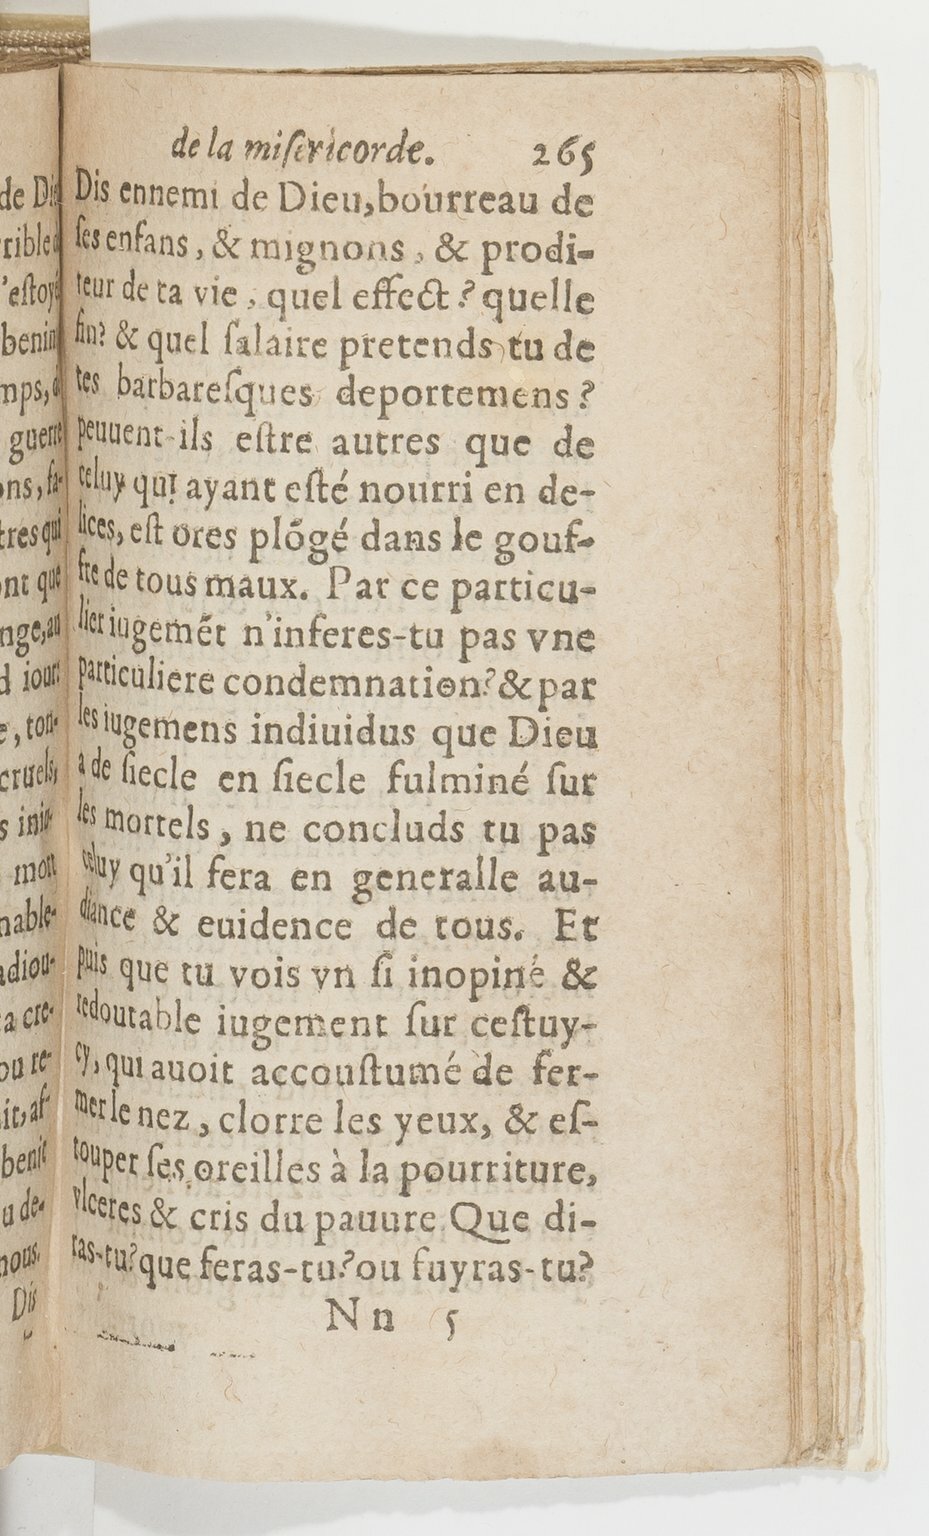 de la miſericorde. 265
Dis ennemi de Dieu, bourreau de
ſes enfans, & mignons, & prodi-
teur de ta vie, quel effect? quelle
fin? & quel ſalaire pretends tu de
tes barbareſques deportemens?
peuuent-ils eſtre autres que de
celuy qui ayant eſté nourri en de-
lices, eſt ores plõgé dans le gouf-
fre de tous maux. Par ce particu-
lier iugemẽt n'inferes-tu pas vne
particuliere condemnation? & par
les iugemens indiuidus que Dieu
a de ſiecle en ſiecle fulminé ſur
les mortels, ne concluds tu pas
celuy qu'il fera en generalle au-
diance & euidence de tous. Et
puis que tu vois vn ſi inopiné &
redoutable iugement ſur ceſtuy-
cy, qui auoit accouſtumé de fer-
mer le nez, clorre les yeux, & eſ-
touper ſes oreilles à la pourriture,
vlceres & cris du pauure Que di-
ras-tu? que feras-tu? ou fuyras-tu?
Nn 5